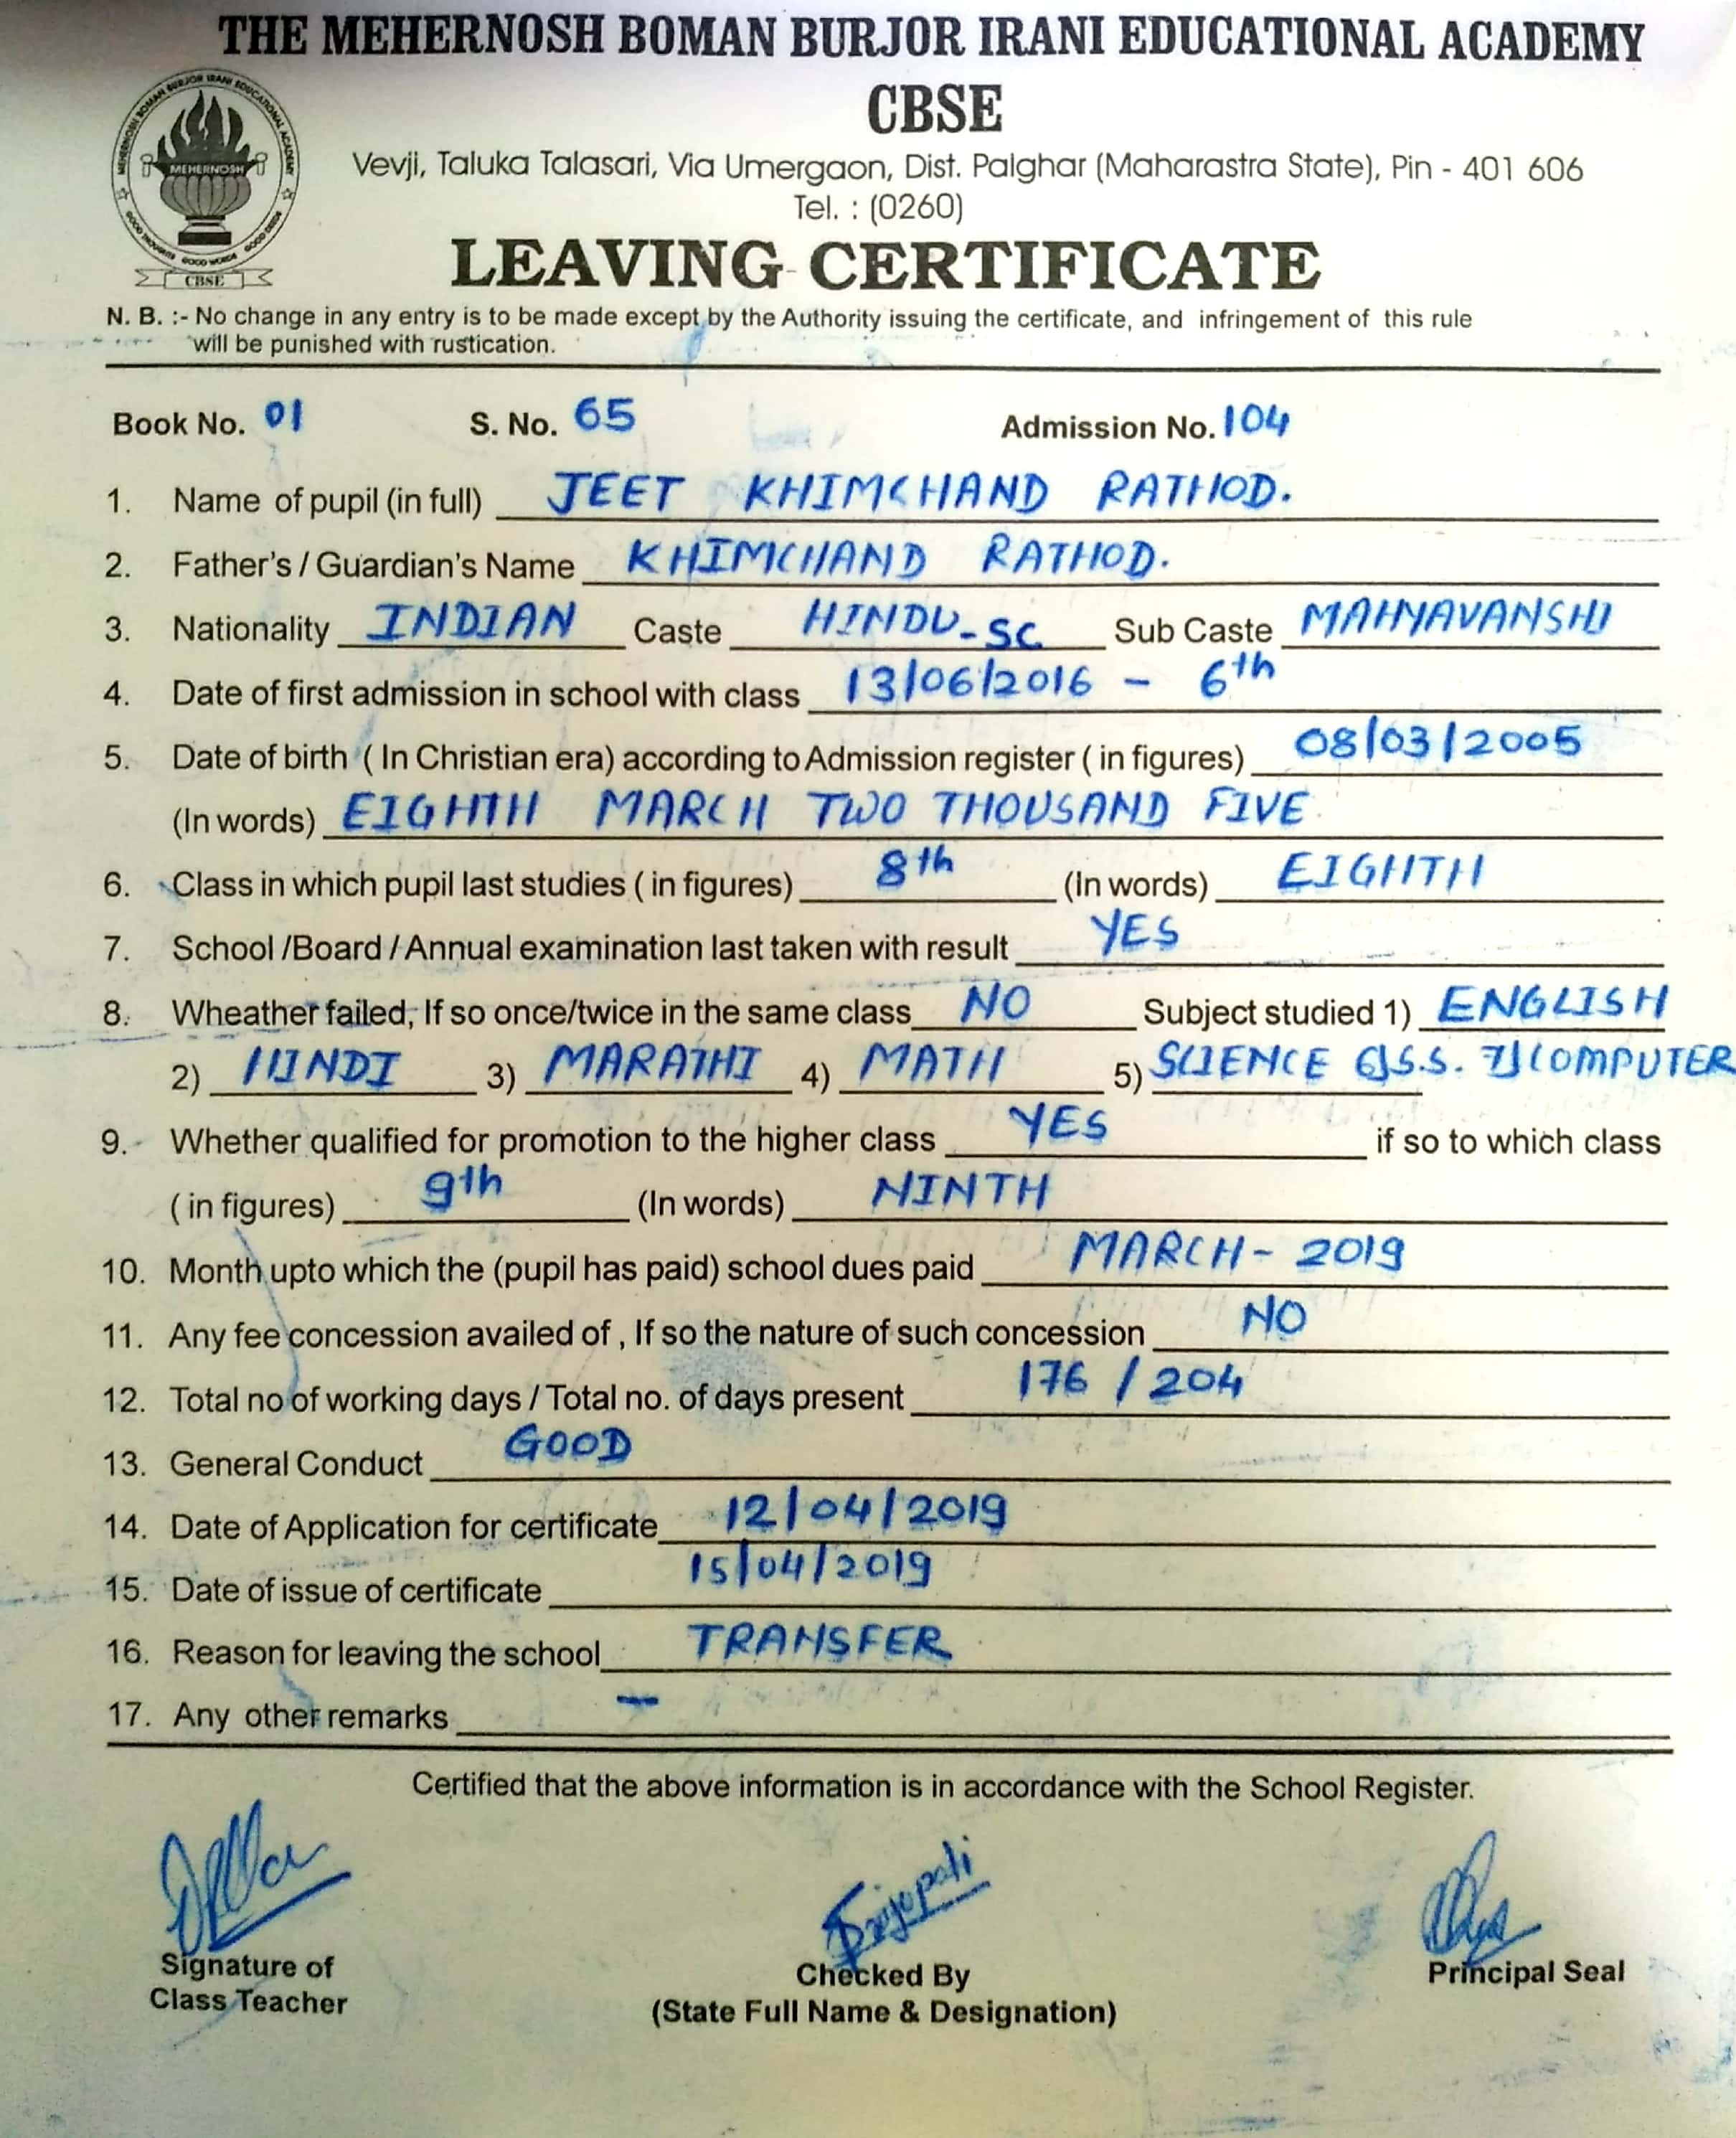 THE MEHERNOSH BOMAN BURJOR IRANI EDUCATIONAL ACADEMY
CBSE
MEHERNOSH BOMAN BURJOR IRANI EDUCATIONAL ACADEMY
MEHERNOSH
GOOD THOUGHTS GOOD WORDS GOOD DEEDS
CBSE
Vevji, Taluka Talasari, Via Umergaon, Dist. Palghar (Maharastra State), Pin - 401 606
Tel. : (0260)
LEAVING CERTIFICATE
N. B. :- No change in any entry is to be made except by the Authority issuing the certificate, and infringement of this rule
will be punished with rustication.
Book No. 01 S. No. 65 Admission No. 104
1. Name of pupil (in full) JEET KHIMCHAND RATHOD.
2. Father's / Guardian's Name KHIMCHAND RATHOD.
3. Nationality INDIAN Caste HINDU-SC Sub Caste MAHYAVANSHI
4. Date of first admission in school with class 13/06/2016 - 6th
5. Date of birth ( In Christian era) according to Admission register ( in figures) 08/03/2005
(In words) EIGHTH MARCH TWO THOUSAND FIVE
6. Class in which pupil last studies ( in figures) 8th (In words) EIGHTH
7. School /Board / Annual examination last taken with result YES
8. Wheather failed, If so once/twice in the same class NO Subject studied 1) ENGLISH
2) HINDI 3) MARATHI 4) MATH 5) SCIENCE 6)S.S. 7)COMPUTER
9. Whether qualified for promotion to the higher class YES if so to which class
( in figures) 9th (In words) NINTH
10. Month upto which the (pupil has paid) school dues paid MARCH - 2019
11. Any fee concession availed of , If so the nature of such concession NO
12. Total no of working days / Total no. of days present 176 / 204
13. General Conduct GOOD
14. Date of Application for certificate 12/04/2019
15. Date of issue of certificate 15/04/2019
16. Reason for leaving the school TRANSFER
17. Any other remarks -
Certified that the above information is in accordance with the School Register.
Signature of
Class Teacher
Checked By
(State Full Name & Designation)
Principal Seal